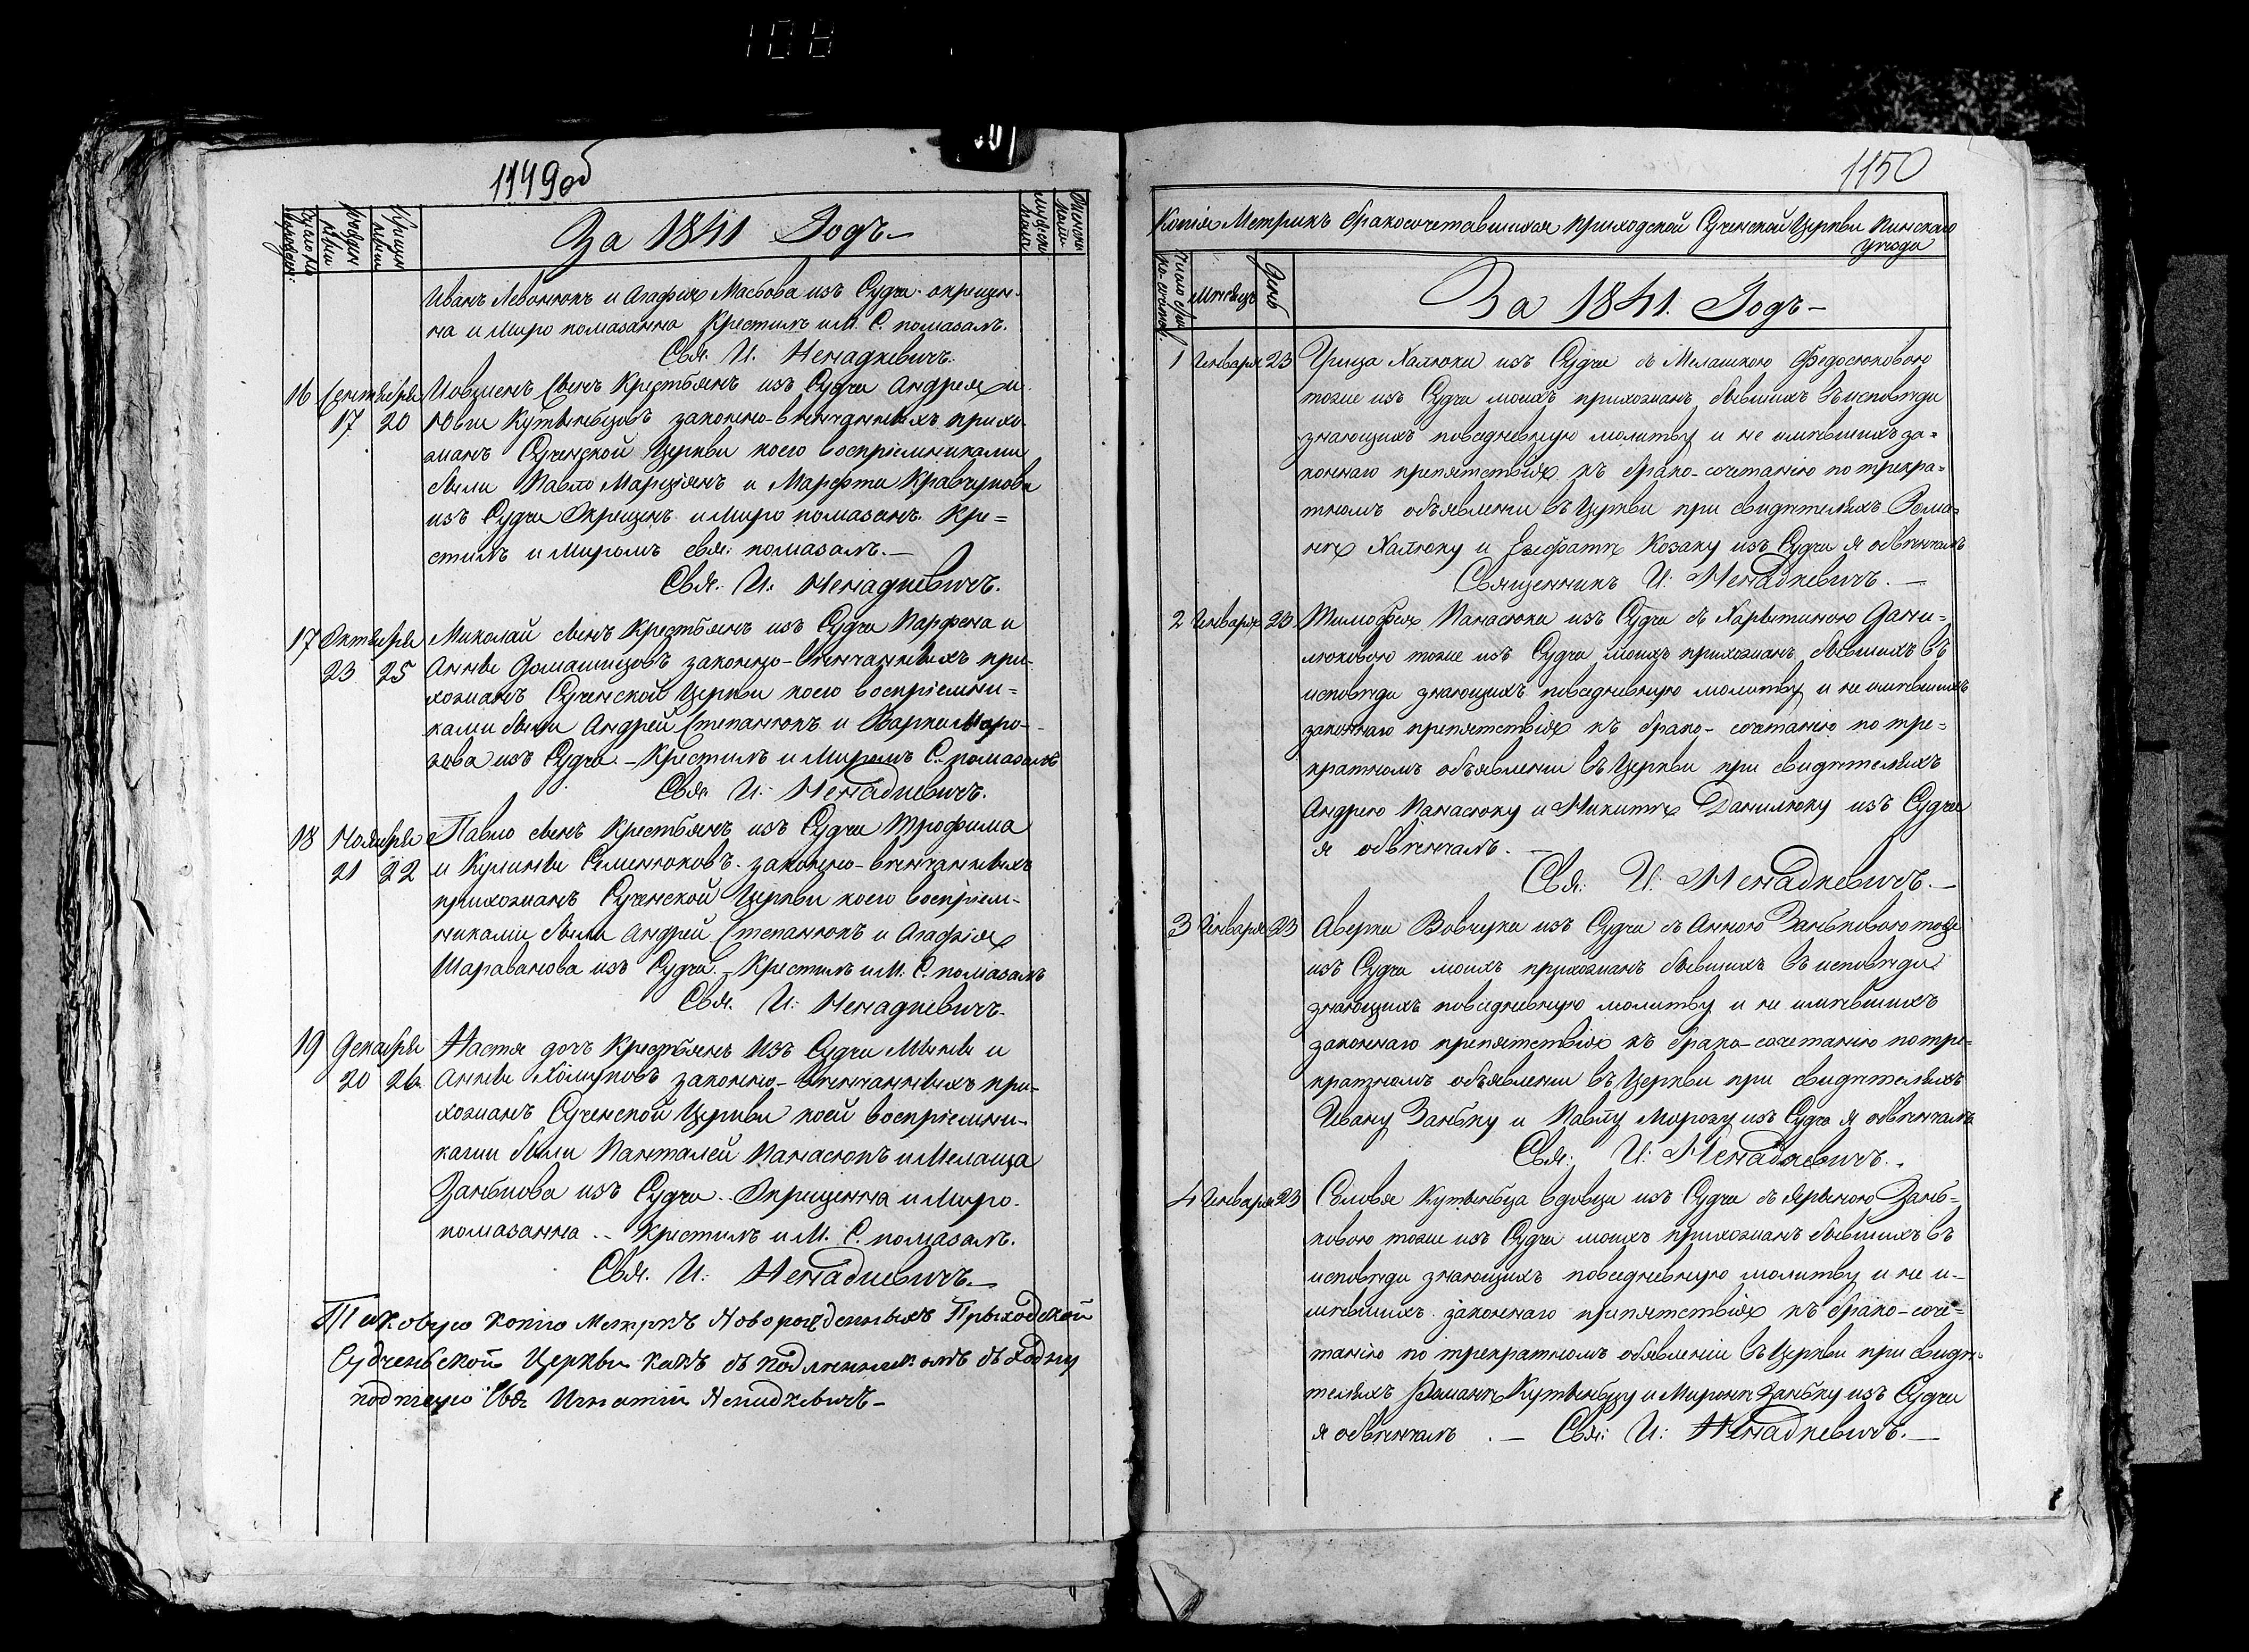 108
1149об
За 1841 Годъ
Иванъ Левонюкъ и Агафія Масбова изъ Судча окрещен-
на и миро помазанна Крестилъ и М. С. помазалъ.
Свя. И. Ненадкевичъ.
16 Сентября сынъ Крестьянъ изъ Судча Андрея и
17 20 законно-вѣнчанныхъ прихо-
жанъ Судченской Церкви коего воспріемниками
были Павло и Марфта Кравчукова
изъ Судча Окрещенъ и Миро помазанъ. Кре=
стилъ и Миромъ свя: помазалъ.—
Свя. И: Ненадкевичъ.
17 Октября Миколай сынъ Крестьянъ изъ Судча Парфена и
23 25 Анны Домашицовъ законно-вѣнчанныхъ при-
хожанъ Судченской Церкви коего воспріемни=
ками были Андрей Степанюкъ и Варка Моро-
зова изъ Судча.—Крестилъ и Миромъ С. помазалъ
Свя. И: Ненадкевичъ.
18 Ноября Павло сынъ Крестьянъ изъ Судча Трофима
21 22 и Кулины Семенюковъ. законно-вѣнчанныхъ
прихожанъ Судченской Церкви коего воспріем-
никами были Андрей Степанюкъ и Агафія
Шараванова изъ Судча.—Крестилъ и М. С. помазалъ
Свя. И: Ненадкевичъ.
19 Декабря Настя дочъ Крестьянъ Изъ Судча и
20 26 Анны законно-вѣнчанныхъ при-
хожанъ Судченской Церкви коей воспріемни-
ками были Панталей Панасюкъ и Мелашка
Занькова изъ Судча.. Окрещенна и Миро-
помазанна.. Крестилъ и М. С. помазалъ.
Свя. И: Ненадкевичъ.—
Таковую копію Метрикъ Новорожденныхъ Приходской
Судченьской Церкви какъ съ подлинникомъ сходну
подписую Свя: Игнатій Ненадкевичъ—
1150
Копія Метрикъ бракосочетавшихся Приходской Судченской Церкви Пинскаго
уѣзда
Мѣсяцъ День За 1841. Годъ—
1 Января 23 Грица Халюка изъ Судча съ Мелашкою Федосюковою
тоже изъ Судча моихъ прихожанъ бывшихъ въ исповѣди
знающихъ повседневную молитву и не имѣвшихъ за=
коннаго препятствія къ брако-сочетанію по трекра=
тномъ объявленіи въ Церкви при свидѣтеляхъ Рома=
нѣ Халюку и Козаку изъ Судча я обвѣнчалъ
Священникъ И: Ненадкевичъ.—
2 Января 23 Тимофея Панасюка изъ Судча съ Харытиною Дани=
люковою тоже изъ Судча моихъ прихожанъ бывшихъ въ
исповѣди знающихъ повседневную молитву и не имѣвшихъ
законнаго препятствія къ брако-сочетанію по тре=
кратномъ объявленіи въ Церкви при свидѣтеляхъ
Андрею Панасюку и Никитѣ Данилюку изъ Судча
я обвѣнчалъ.—
Свя: И: Ненадкевичъ.—
3 Января 23 Аверка Вовчука изъ Судча съ Анною Заньковою тоже
изъ Судча моихъ прихожанъ бывшихъ въ исповѣди
знающихъ повседневную молитву и не имѣвшихъ
законнаго препятствія къ брако-сочетанію по тре=
кратномъ объявленіи въ Церкви при свидѣтеляхъ
Ивану Заньку и Павлу Морозу изъ Судча я обвѣнчалъ
Свя: И: Ненадкевичъ.
4 Января 23 вдовца изъ Судча съ Ярыною Зань=
ковою тоже изъ Судча моихъ прихожанъ бывшихъ въ
исповѣди знающихъ повседневную молитву и не и-
мѣвшихъ законнаго препятствія къ брако-соче=
танію по трекратномъ объявленіи въ Церкви при свидѣ-
теляхъ Романѣ и Миронѣ Заньку изъ Судча
я обвѣнчалъ.— Свя: И: Ненадкевичъ.—